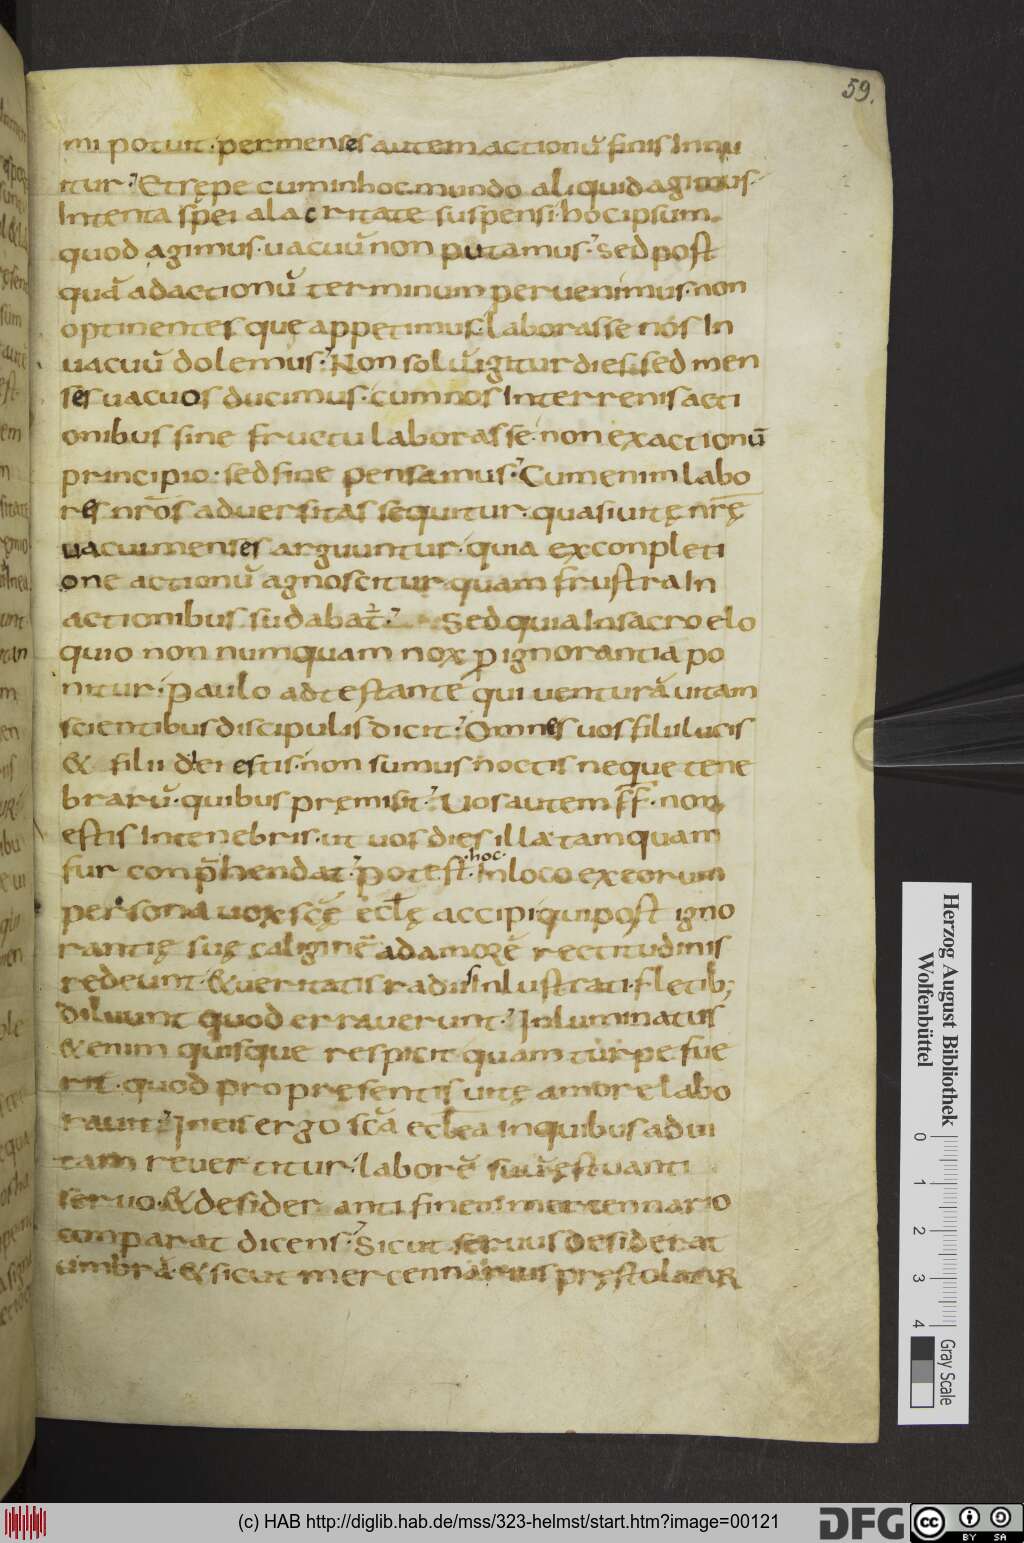 59.
mi potuit· per menses autem actionū finis innu
itur·ʾ Et sępe cum in hoc mundo aliquid agimus·
Intenta spei alacritate suspensi· hoc ipsum
quod agimus· uacuū non putamus·ʾ sed post
quā ad actionū terminum peruenimus· non
optinentes quę appetimus· laborasse nós In
uacuū dolemus·ʾ Non solū igitur dies· sed men
ses uacuos ducimus· cum nos Interrenis acti
onibus sine fructu laborasse· non ex actionū
principio· sed fine pensamus·ʾ Cum enim labo
res nr̄os aduersitas sequitur· quasi uitę nr̄ę
uacui menses arguuntur· quia ex conpleti
one actionū agnoscitur quam frustra In
actionibus sudabat̄·ʾ Sed quia In sacro elo
quio non numquam nox ꝓ ignorantia po
nitur· Paulo adtestante qui uenturā uitam
scientibus discipulis dicit·ʾ Omnes uos filii lucis
& filii dei estis· non sumus noctis neque tene
brarū· quibus pręmisit·ʾ Uos autem f̄f̄· non
estis In tenebris· ut uos dies illa tamquam
·hoc·
fur conp̄hendat·ʾ Potest· In loco ex eorum
persona uox scę̄ ecl̄ę accipi qui post igno
rantię suę caliginē ad amorē rectitudinis
redeunt· & ueritatis radiis Inlustrati· fletib;
diluunt quod errauerunt·ʾ Inluminatus
&enim quisque respicit quam turpe fue
rit· quod pro pręsentis uitę amore labo
rauit·ʾ In eis ergo scā ecl̄ea in quibus ad ui
tam reuertitur· laborē suū ęstuanti
seruo· & desideranti finem mercennario
comparat dicens·ʾ Sicut seruus desiderat
umbrā· & sicut mercennarius pręstolatur
Herzog August Bibliothek
Wolfenbüttel
0
1
2
3
4
Gray Scale
(c) HAB http://diglib.hab.de/mss/323-helmst/start.htm?image=00121
DFG
cc
BY
SA